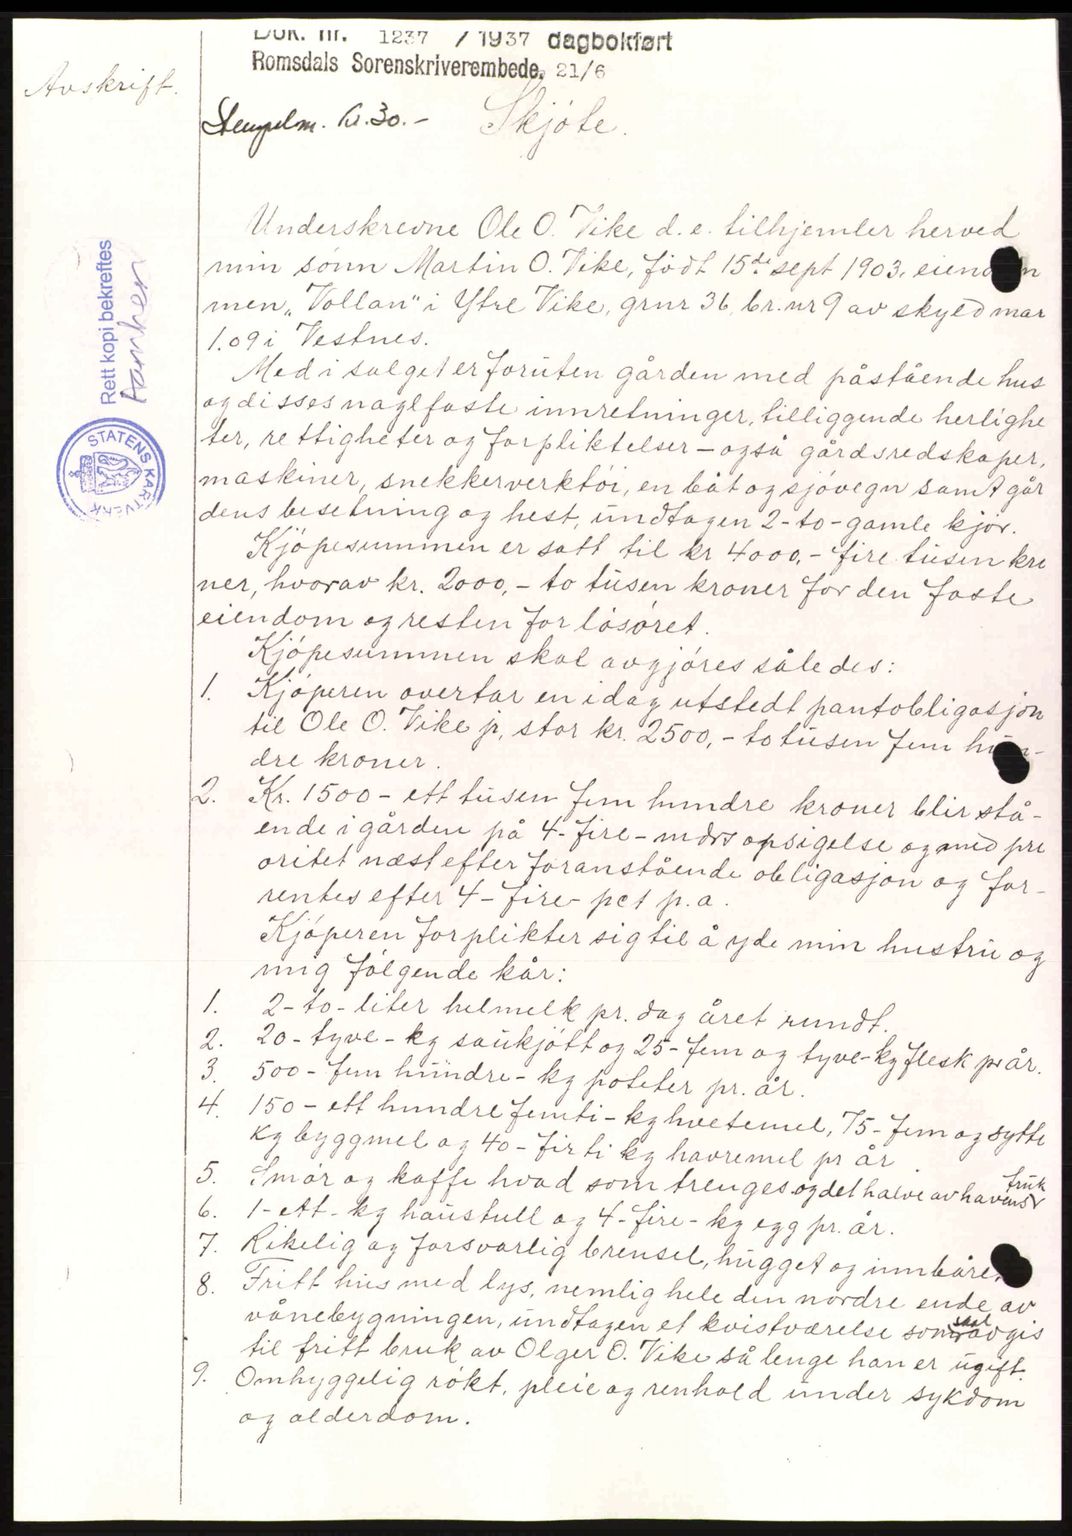 Dok. nr. 1237 / 1937 dagbokført
Romsdals Sorenskriverembede. 21/6
Avskrift.
Stempelm. kr. 30.-
Skjøte.
Rett kopi bekreftes
STATENS KARTVERK
Underskrevne Ole O. Vike d. e. tilhjemler herved
min sønn Martin O. Vike, født 15de sept 1903. eiendom
men „Vollan" i Ytre Vike, grnr 36, br. nr 9 av skyld mar
1.09 i Vestnes.
Med i salget er foruten gården med påstående hus
og disses naglfaste innretninger, tilliggende herlighe
ter, rettigheter og forpliktelser – også gårdsredskaper,
maskiner, snekkerverktøi, en båt og sjøvegn samt går
dens besetning og hest, undtagen 2-to-gamle kjør.
Kjøpesummen er satt til kr 4000,- fire tusen kro
ner, hvorav kr. 2000,- to tusen kroner for den faste
eiendom og resten for løsøret.
Kjøpesummen skal avgjøres således:
1. Kjøperen overtar en idag utstedt pantobligasjon
til Ole O. Vike jr, stor kr. 2500,- to tusen fem hun-
dre kroner.
2. Kr. 1500- ett tusen fem hundre kroner blir stå-
ende i gården på 4-fire-mdrs opsigelse og med pri
oritet næst efter foranstående obligasjon og for-
rentes efter 4-fire-pct p.a.
Kjøperen forplikter sig til å yde min hustru og
mig følgende kår:
1. 2-to-liter helmelk pr. dag året rundt.
2. 20-tyve-kg saukjøtt og 25-fem og tyve-kg flesk pr år.
3. 500-fem hundre-kg poteter pr. år.
4. 150-ett hundre femti-kg hvetemel, 75-fem og sytti
kg byggmel og 40-firti kg havremel pr år.
5. Smør og kaffe hvad som trenges og det halve av havens frukt
6. 1-ett-kg haustull og 4-fire-kg egg pr. år.
7. Rikelig og forsvarlig brensel, hugget og innbåre.
8. Fritt hus med lys, nemlig hele den nordre ende av
vånebygningen, undtagen et kvistværelse som skal avgis
til fritt bruk av Olger O. Vike så lenge han er ugift.
9. Omhyggelig røkt, pleie og renhold under sykdom
og alderdom.